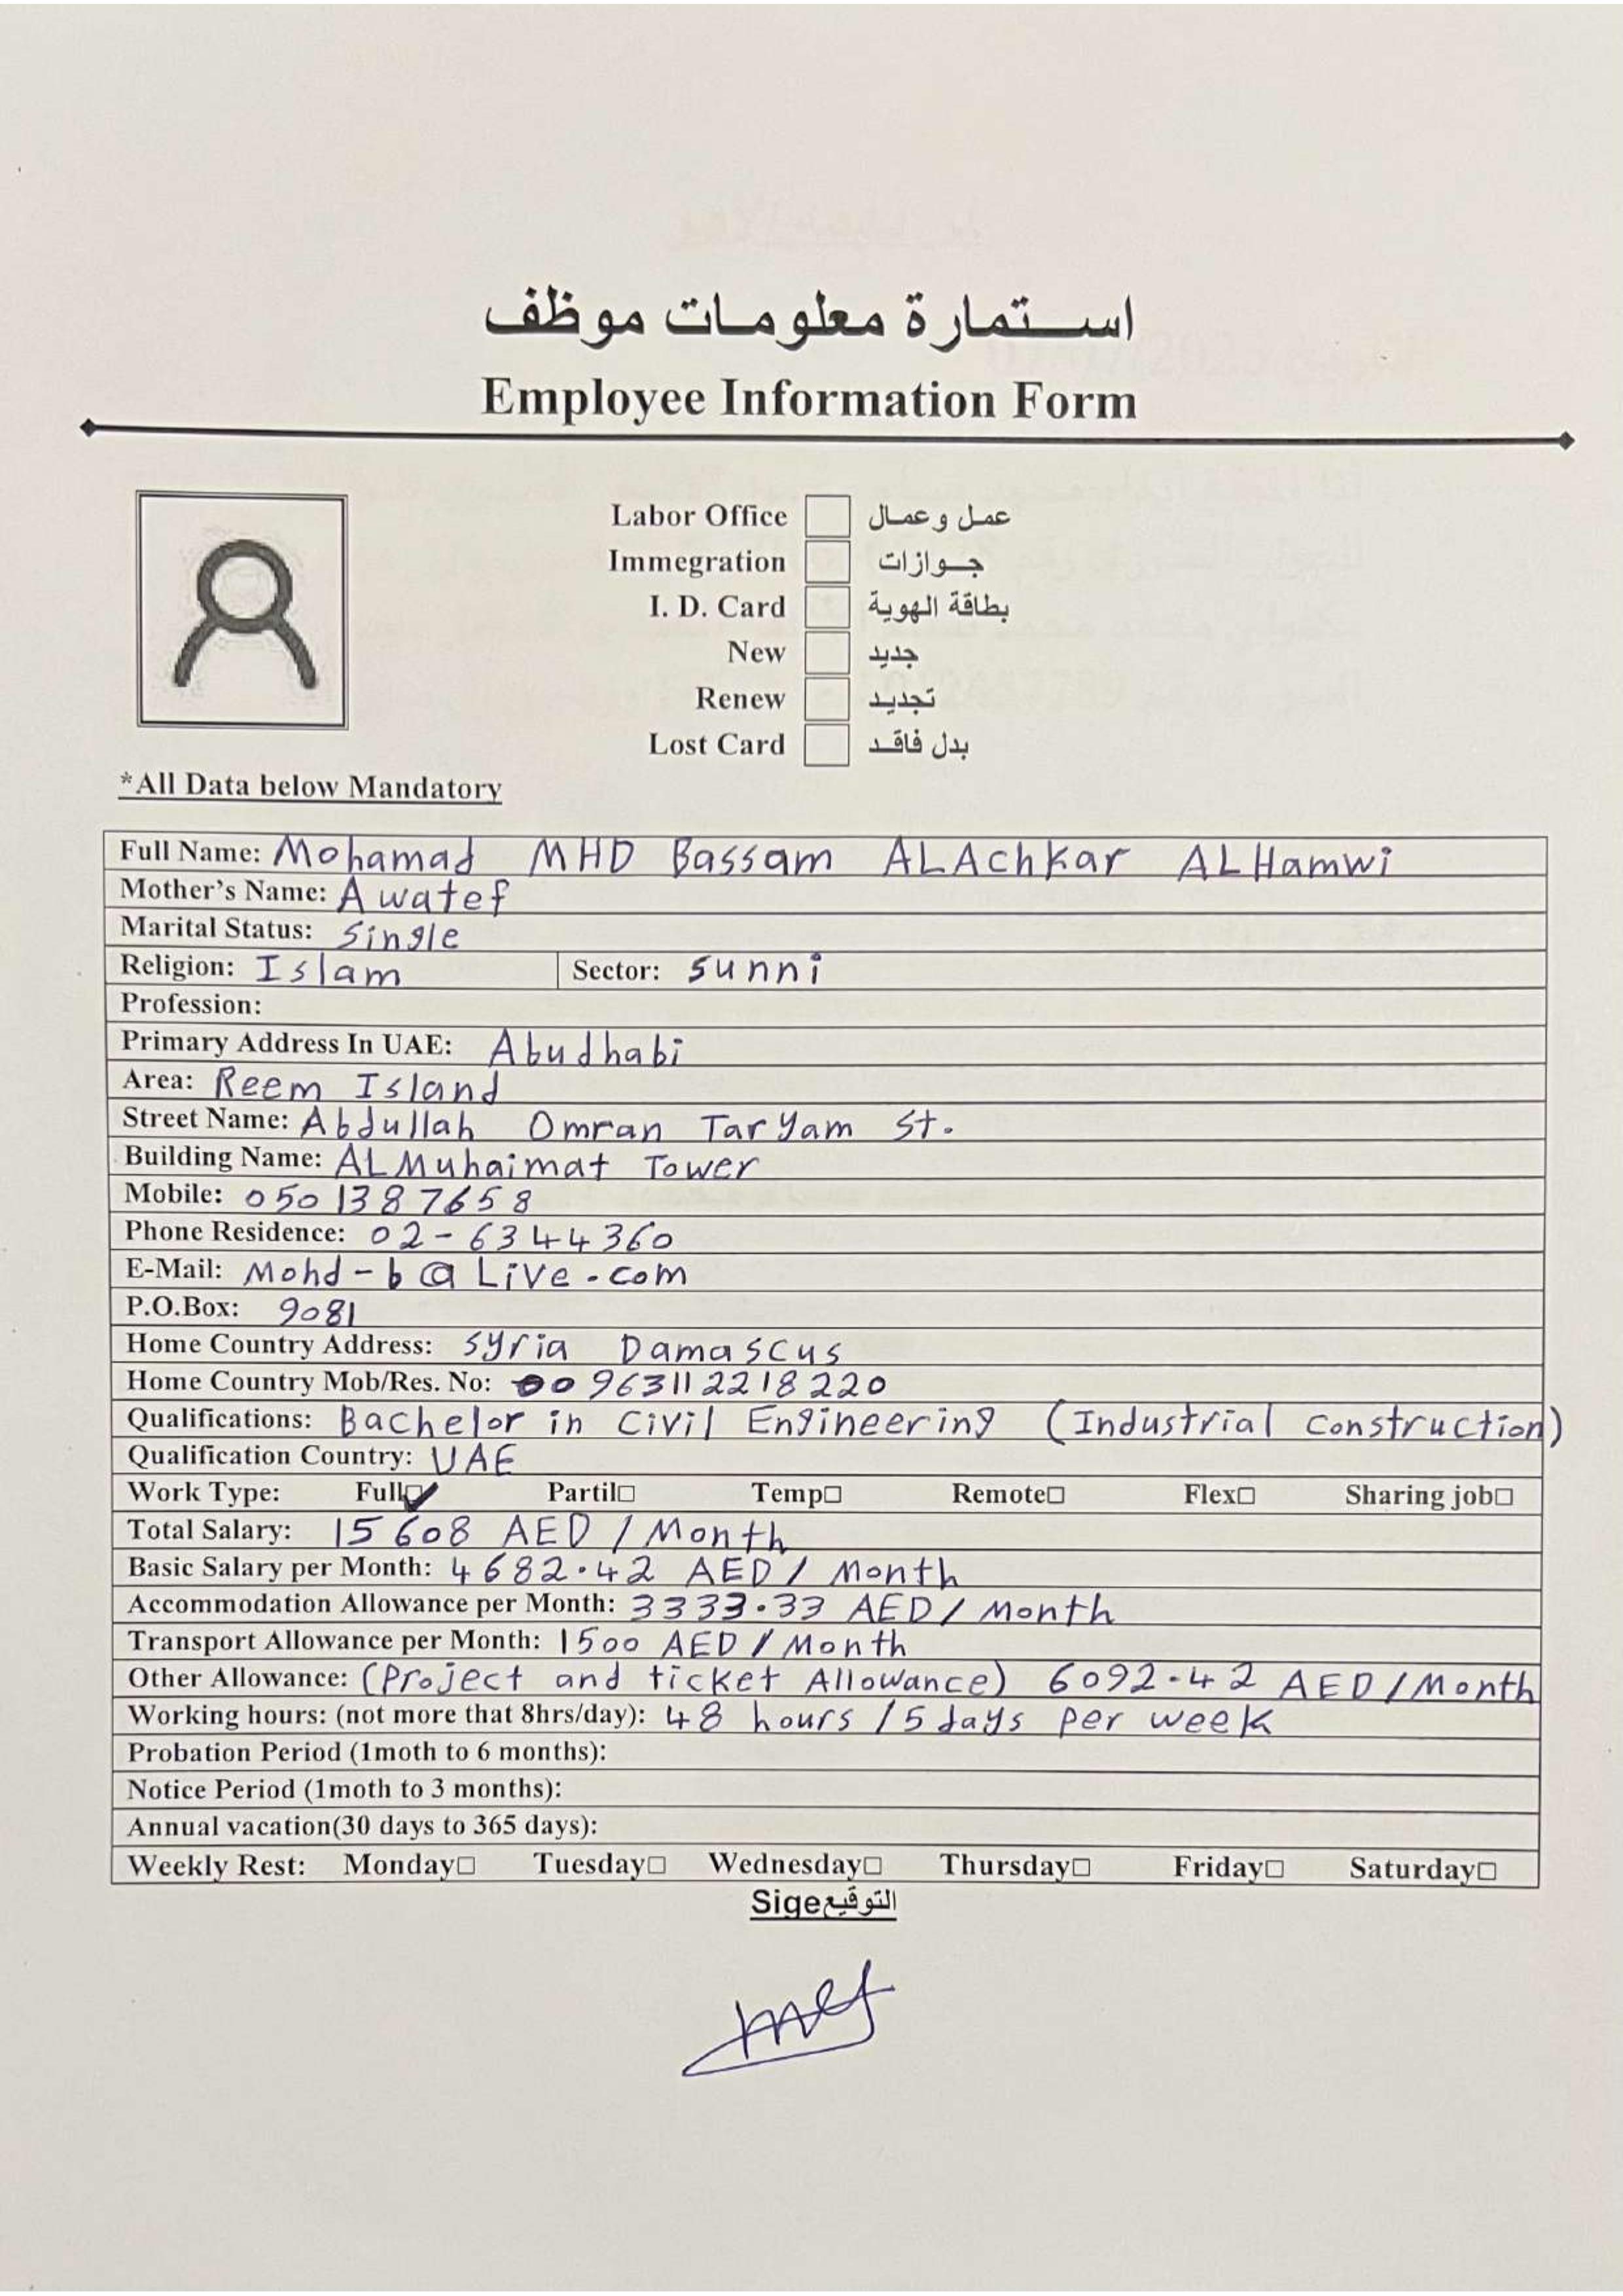 استمارة معلومات موظف
Employee Information Form
Labor Office عمل وعمال
Immegration جوازات
I. D. Card بطاقة الهوية
New جديد
Renew تجديد
Lost Card بدل فاقد
*All Data below Mandatory
Full Name: Mohamad MHD Bassam ALAchkar ALHamwi
Mother's Name: Awatef
Marital Status: Single
Religion: Islam Sector: Sunni
Profession:
Primary Address In UAE: Abudhabi
Area: Reem Island
Street Name: Abdullah Omran Taryam St.
Building Name: ALMuhaimat Tower
Mobile: 0501387658
Phone Residence: 02-6344360
E-Mail: Mohd-b@Live.com
P.O.Box: 9081
Home Country Address: Syria Damascus
Home Country Mob/Res. No: 00963112218220
Qualifications: Bachelor in Civil Engineering (Industrial construction)
Qualification Country: UAE
Work Type: Full Partil Temp Remote Flex Sharing job
Total Salary: 15608 AED / Month
Basic Salary per Month: 4682.42 AED / Month
Accommodation Allowance per Month: 3333.33 AED / Month
Transport Allowance per Month: 1500 AED / Month
Other Allowance: (Project and ticket Allowance) 6092.42 AED / Month
Working hours: (not more that 8hrs/day): 48 hours / 5 days per week
Probation Period (1moth to 6 months):
Notice Period (1moth to 3 months):
Annual vacation(30 days to 365 days):
Weekly Rest: Monday Tuesday Wednesday Thursday Friday Saturday
Sige التوقيع